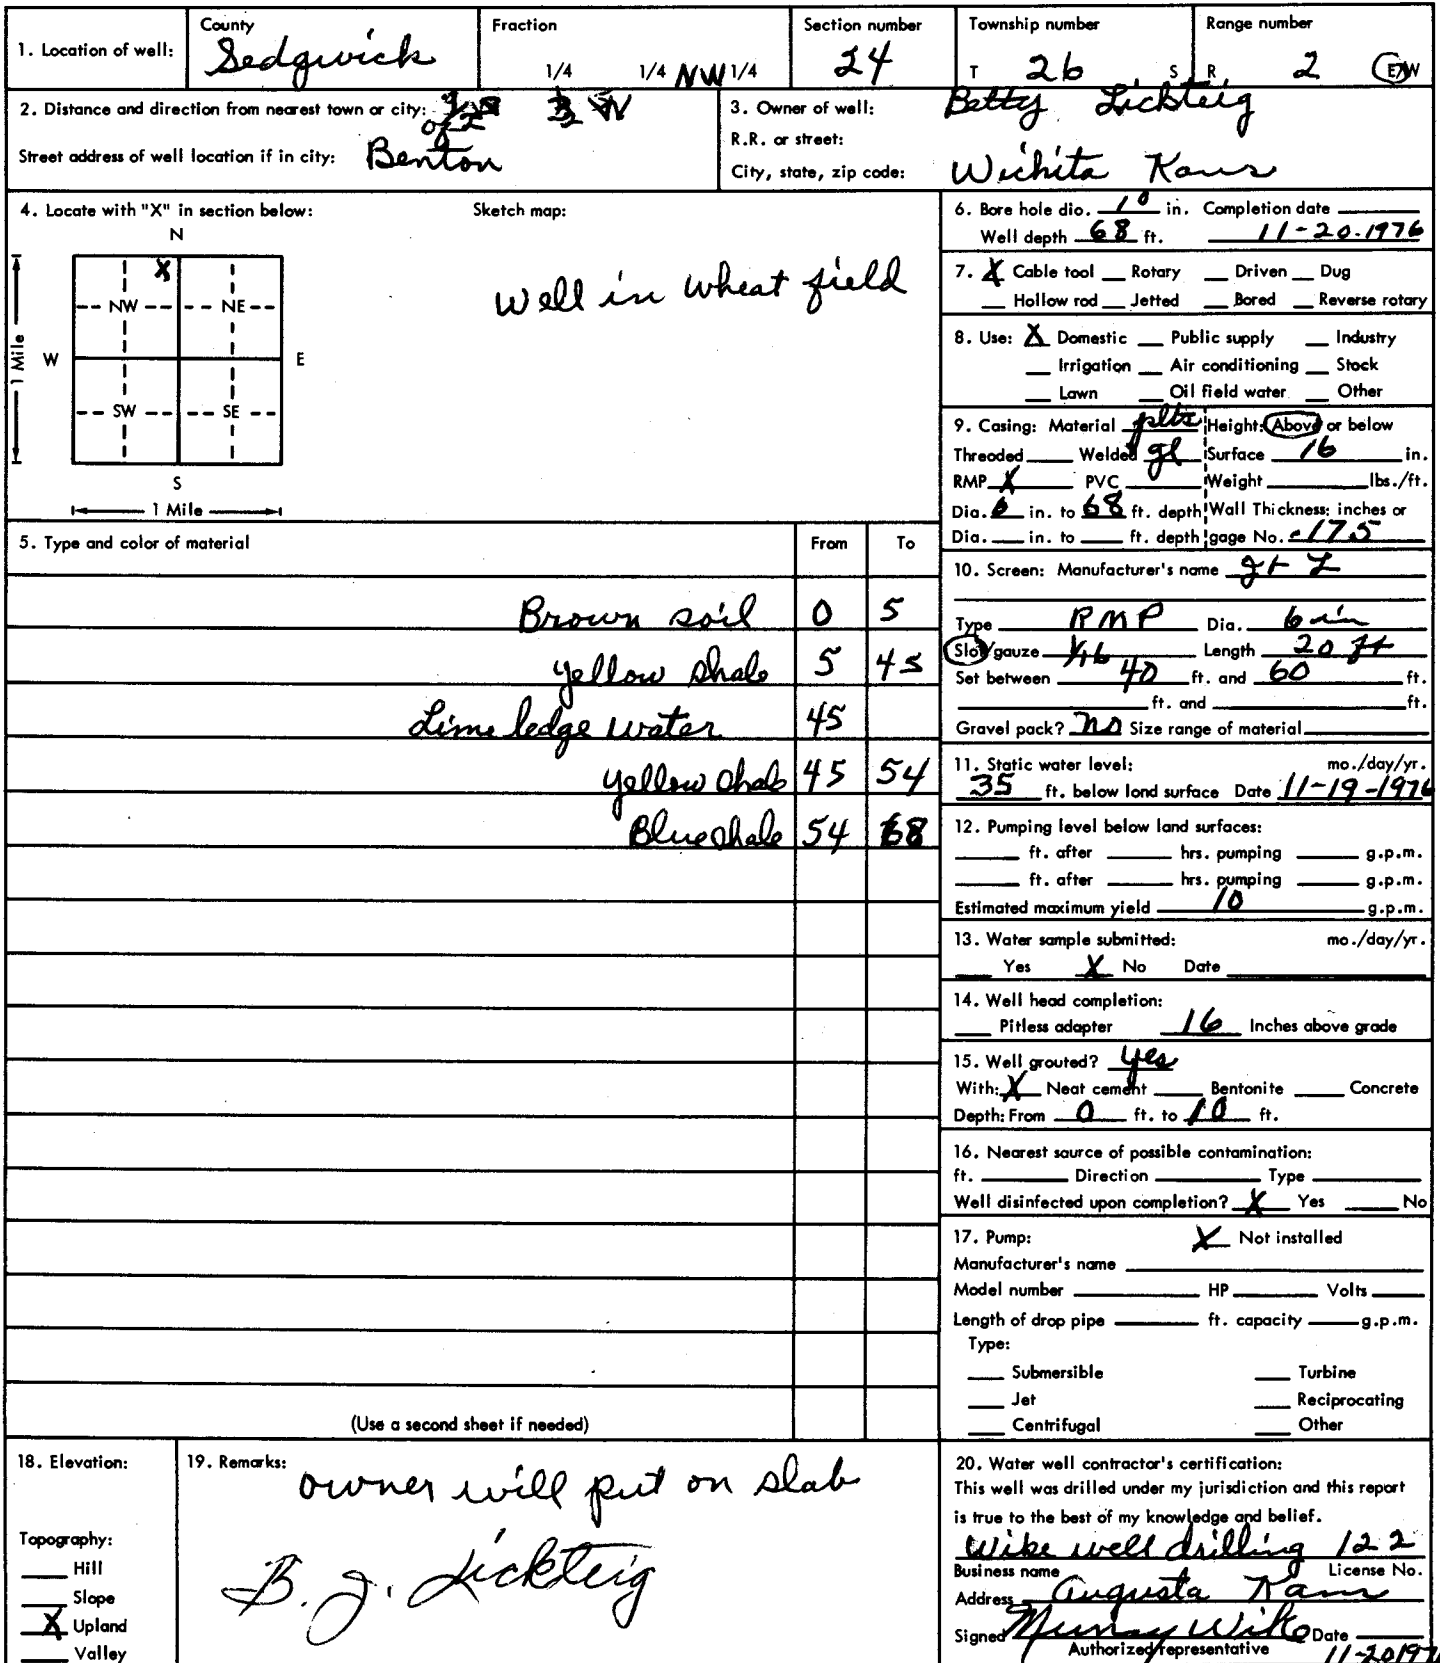 1. Location of well: County Sedgwick Fraction 1/4 1/4 NW 1/4 Section number 24 Township number T 26 S Range number R 2 E/W
2. Distance and direction from nearest town or city: of
Street address of well location if in city: Benton
3. Owner of well: Betty Lickteig
R.R. or street:
City, state, zip code: Wichita Kans
4. Locate with "X" in section below: Sketch map:
N
X
NW NE
W E
SW SE
S
1 Mile
1 Mile
Well in wheat field
5. Type and color of material From To
Brown soil 0 5
yellow shale 5 45
Lime ledge water 45
yellow shale 45 54
Blue shale 54 68
(Use a second sheet if needed)
6. Bore hole dia. 10 in. Completion date
Well depth 68 ft. 11-20-1976
7. X Cable tool Rotary Driven Dug
Hollow rod Jetted Bored Reverse rotary
8. Use: X Domestic Public supply Industry
Irrigation Air conditioning Stock
Lawn Oil field water Other
9. Casing: Material plts Height: Above or below
Threaded Welded gl Surface 16 in.
RMP X PVC Weight lbs./ft.
Dia. 6 in. to 68 ft. depth Wall Thickness: inches or
Dia. in. to ft. depth gage No. .175
10. Screen: Manufacturer's name
Type RMP Dia. 6 in
Slot/gauze 1/16 Length 20 ft
Set between 40 ft. and 60 ft.
ft. and ft.
Gravel pack? no Size range of material
11. Static water level: mo./day/yr.
35 ft. below land surface Date 11-19-1976
12. Pumping level below land surfaces:
ft. after hrs. pumping g.p.m.
ft. after hrs. pumping g.p.m.
Estimated maximum yield 10 g.p.m.
13. Water sample submitted: mo./day/yr.
Yes X No Date
14. Well head completion:
Pitless adapter 16 Inches above grade
15. Well grouted? yes
With: X Neat cement Bentonite Concrete
Depth: From 0 ft. to 10 ft.
16. Nearest source of possible contamination:
ft. Direction Type
Well disinfected upon completion? X Yes No
17. Pump: X Not installed
Manufacturer's name
Model number HP Volts
Length of drop pipe ft. capacity g.p.m.
Type:
Submersible Turbine
Jet Reciprocating
Centrifugal Other
18. Elevation:
Topography:
Hill
Slope
X Upland
Valley
19. Remarks: owner will put on slab
B. J. Lickteig
20. Water well contractor's certification:
This well was drilled under my jurisdiction and this report
is true to the best of my knowledge and belief.
Wike well drilling 122
Business name License No.
Address Augusta Kans
Signed Murray Wike Date
Authorized representative 11-20 197